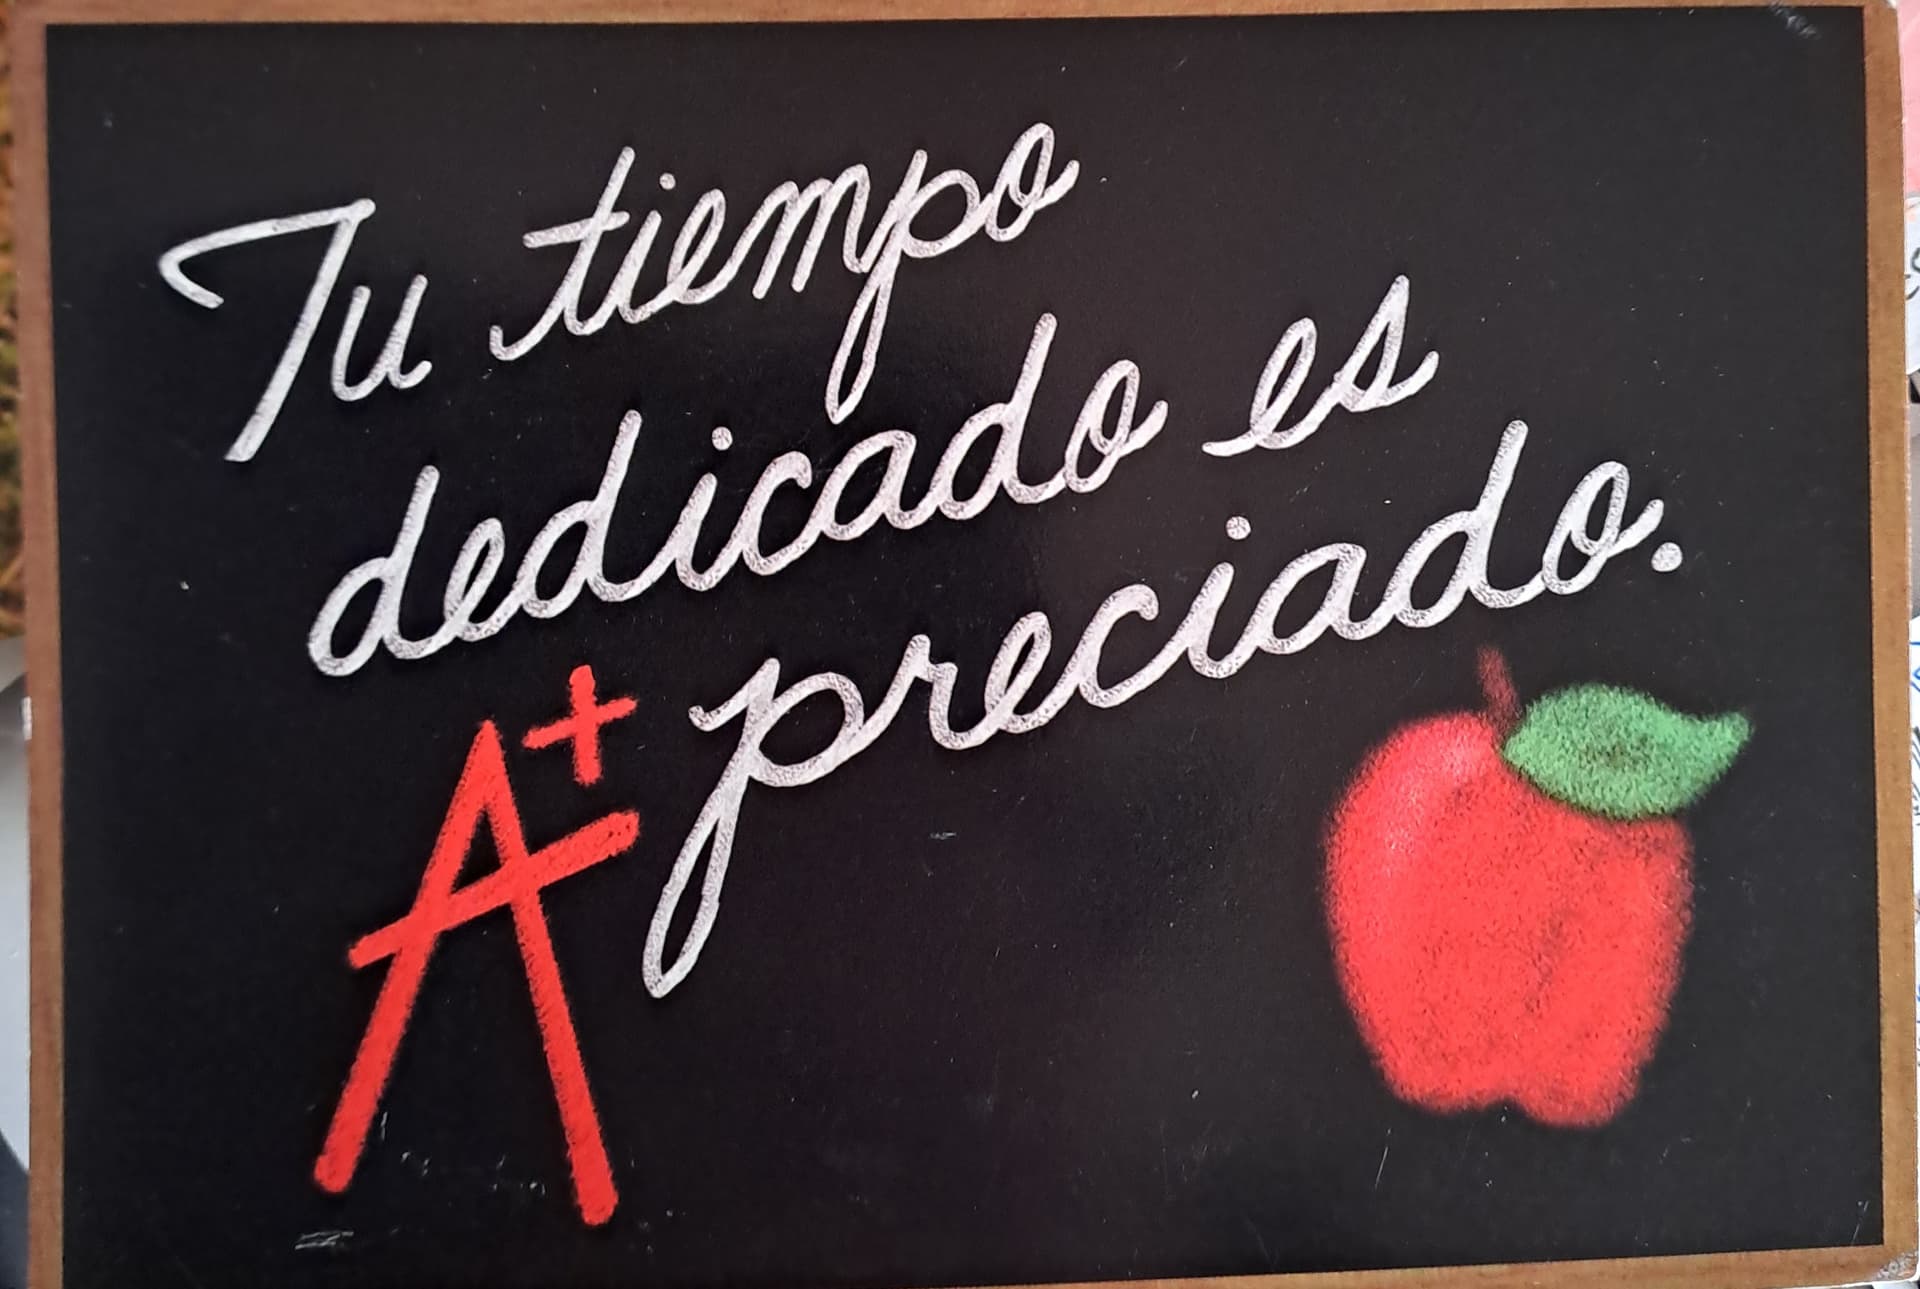 Tu tiempo
dedicado es
preciado.
A+